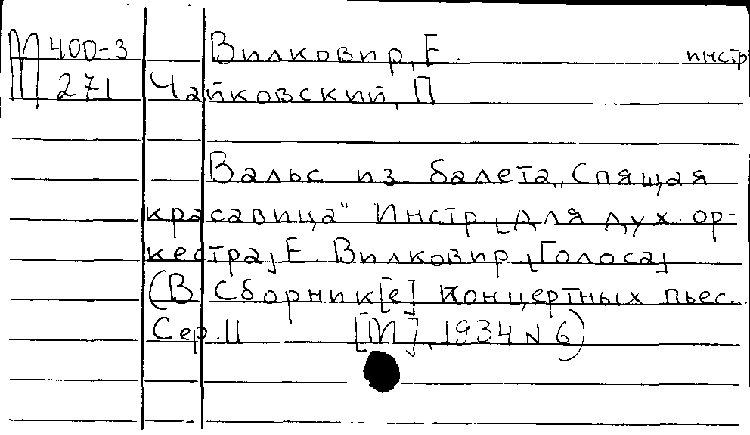 М 400-3 Вилковир, Е. инстр
271 Чайковский, П
Вальс из балета „Спящая
красавица" Инстр [для дух ор-
кестра] Е. Вилковир [Голоса]
(В Сборник[е] концертных пьес.
Сер. II [М], 1934 N 6)